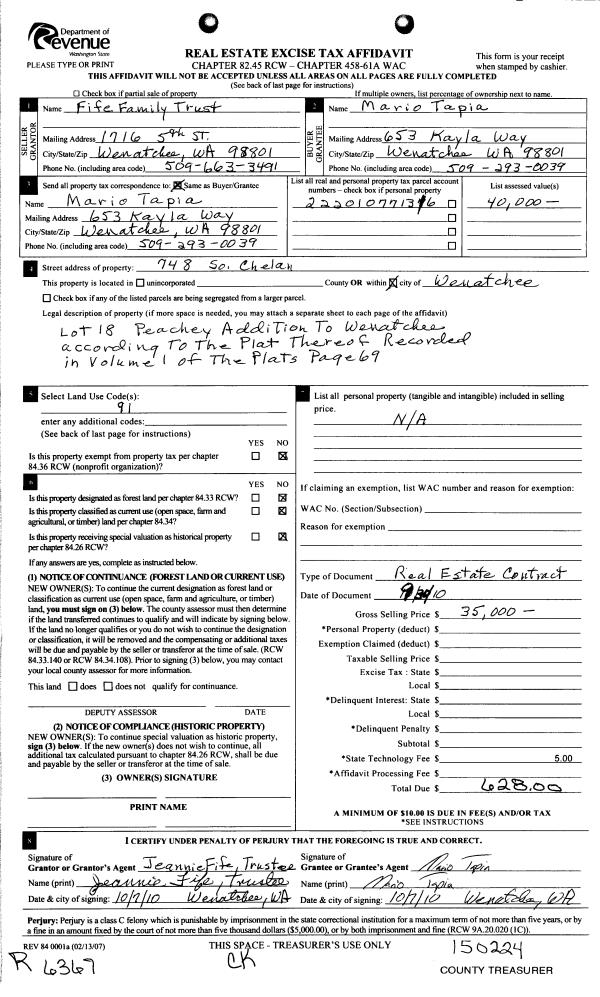 Department of
Revenue
Washington State
PLEASE TYPE OR PRINT
REAL ESTATE EXCISE TAX AFFIDAVIT
CHAPTER 82.45 RCW – CHAPTER 458-61A WAC
This form is your receipt
when stamped by cashier.
THIS AFFIDAVIT WILL NOT BE ACCEPTED UNLESS ALL AREAS ON ALL PAGES ARE FULLY COMPLETED
(See back of last page for instructions)
Check box if partial sale of property
If multiple owners, list percentage of ownership next to name.
1 Name Fife Family Trust
SELLER GRANTOR
Mailing Address 1716 5th ST.
City/State/Zip Wenatchee, WA 98801
Phone No. (including area code) 509-663-3491
2 Name Mario Tapia
BUYER GRANTEE
Mailing Address 653 Kayla Way
City/State/Zip Wenatchee WA 98801
Phone No. (including area code) 509-293-0039
3 Send all property tax correspondence to: Same as Buyer/Grantee
Name Mario Tapia
Mailing Address 653 Kayla Way
City/State/Zip Wenatchee, WA 98801
Phone No. (including area code) 509-293-0039
List all real and personal property tax parcel account
numbers – check box if personal property
List assessed value(s)
40,000 —
4 Street address of property: 748 So. Chelan
This property is located in unincorporated County OR within city of Wenatchee
Check box if any of the listed parcels are being segregated from a larger parcel.
Legal description of property (if more space is needed, you may attach a separate sheet to each page of the affidavit)
Lot 18 Peachey Addition To Wenatchee
according To The Plat Thereof Recorded
in Volume 1 of The Plats Page 69
5 Select Land Use Code(s):
91
enter any additional codes:
(See back of last page for instructions)
YES NO
Is this property exempt from property tax per chapter
84.36 RCW (nonprofit organization)?
6 YES NO
Is this property designated as forest land per chapter 84.33 RCW?
Is this property classified as current use (open space, farm and
agricultural, or timber) land per chapter 84.34?
Is this property receiving special valuation as historical property
per chapter 84.26 RCW?
If any answers are yes, complete as instructed below.
(1) NOTICE OF CONTINUANCE (FOREST LAND OR CURRENT USE)
NEW OWNER(S): To continue the current designation as forest land or
classification as current use (open space, farm and agriculture, or timber)
land, you must sign on (3) below. The county assessor must then determine
if the land transferred continues to qualify and will indicate by signing below.
If the land no longer qualifies or you do not wish to continue the designation
or classification, it will be removed and the compensating or additional taxes
will be due and payable by the seller or transferor at the time of sale. (RCW
84.33.140 or RCW 84.34.108). Prior to signing (3) below, you may contact
your local county assessor for more information.
This land does does not qualify for continuance.
DEPUTY ASSESSOR DATE
(2) NOTICE OF COMPLIANCE (HISTORIC PROPERTY)
NEW OWNER(S): To continue special valuation as historic property,
sign (3) below. If the new owner(s) does not wish to continue, all
additional tax calculated pursuant to chapter 84.26 RCW, shall be due
and payable by the seller or transferor at the time of sale.
(3) OWNER(S) SIGNATURE
PRINT NAME
7 List all personal property (tangible and intangible) included in selling
price.
N/A
If claiming an exemption, list WAC number and reason for exemption:
WAC No. (Section/Subsection)
Reason for exemption
Type of Document Real Estate Contract
Date of Document
Gross Selling Price $ 35,000 —
*Personal Property (deduct) $
Exemption Claimed (deduct) $
Taxable Selling Price $
Excise Tax : State $
Local $
*Delinquent Interest: State $
Local $
*Delinquent Penalty $
Subtotal $
*State Technology Fee $ 5.00
*Affidavit Processing Fee $
Total Due $ 628.00
A MINIMUM OF $10.00 IS DUE IN FEE(S) AND/OR TAX
*SEE INSTRUCTIONS
8 I CERTIFY UNDER PENALTY OF PERJURY THAT THE FOREGOING IS TRUE AND CORRECT.
Signature of
Grantor or Grantor's Agent Jeannie Fife, Trustee
Name (print) Jeannie Fife, Trustee
Date & city of signing: 10/7/10 Wenatchee, WA
Signature of
Grantee or Grantee's Agent Mario Tapia
Name (print) Mario Tapia
Date & city of signing: 10/7/10 Wenatchee, WA
Perjury: Perjury is a class C felony which is punishable by imprisonment in the state correctional institution for a maximum term of not more than five years, or by
a fine in an amount fixed by the court of not more than five thousand dollars ($5,000.00), or by both imprisonment and fine (RCW 9A.20.020 (1C)).
REV 84 0001a (02/13/07)
THIS SPACE - TREASURER'S USE ONLY
150224
R 6367
CK
COUNTY TREASURER